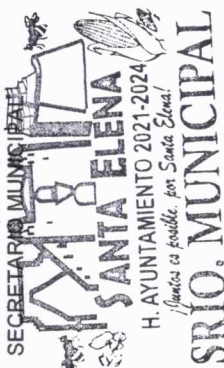 SECRETARIO MUNICIPAL
SANTA ELENA
H. AYUNTAMIENTO 2021-2024
¡Juntos es posible, por Santa Elena!
SRIO. MUNICIPAL